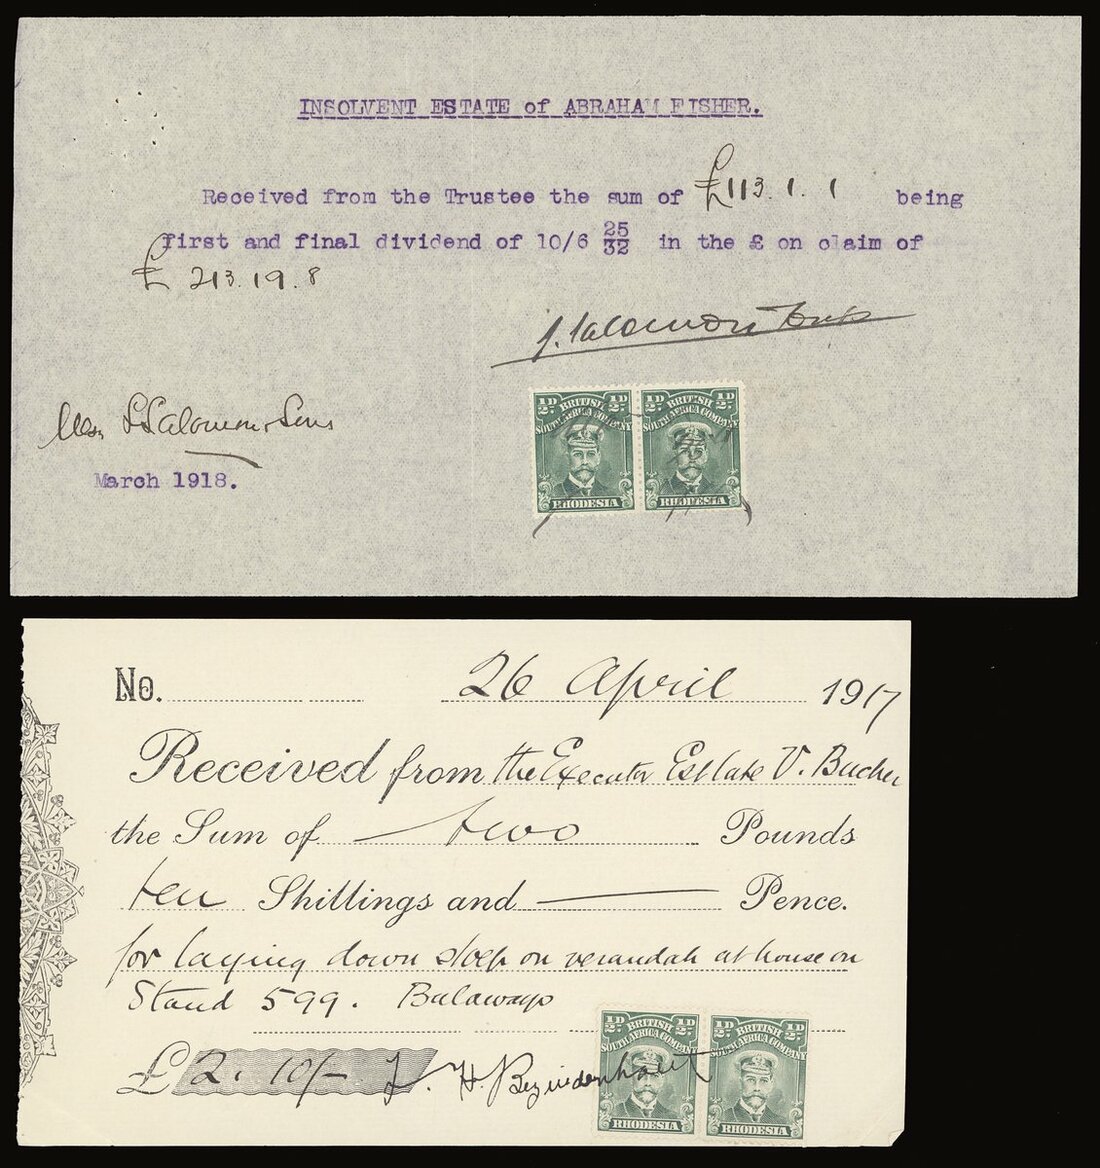 INSOLVENT ESTATE of ABRAHAM FISHER.
Received from the Trustee the sum of £113.1.1 being
first and final dividend of 10/6 25/32 in the £ on claim of
£ 213.19.8
Salomon
Salomon Sons
March 1918.
½D BRITISH ½D ½D BRITISH ½D
SOUTH AFRICA COMPANY SOUTH AFRICA COMPANY
RHODESIA RHODESIA
No. 26 April 1917
Received from the Executor Estate V. Bucher
the Sum of two Pounds
ten Shillings and — Pence.
for laying down stoep on verandah at house on
Stand 599. Bulawayo
£2.10/- H. Bezuidenhout
½D BRITISH ½D ½D BRITISH ½D
SOUTH AFRICA COMPANY SOUTH AFRICA COMPANY
RHODESIA RHODESIA